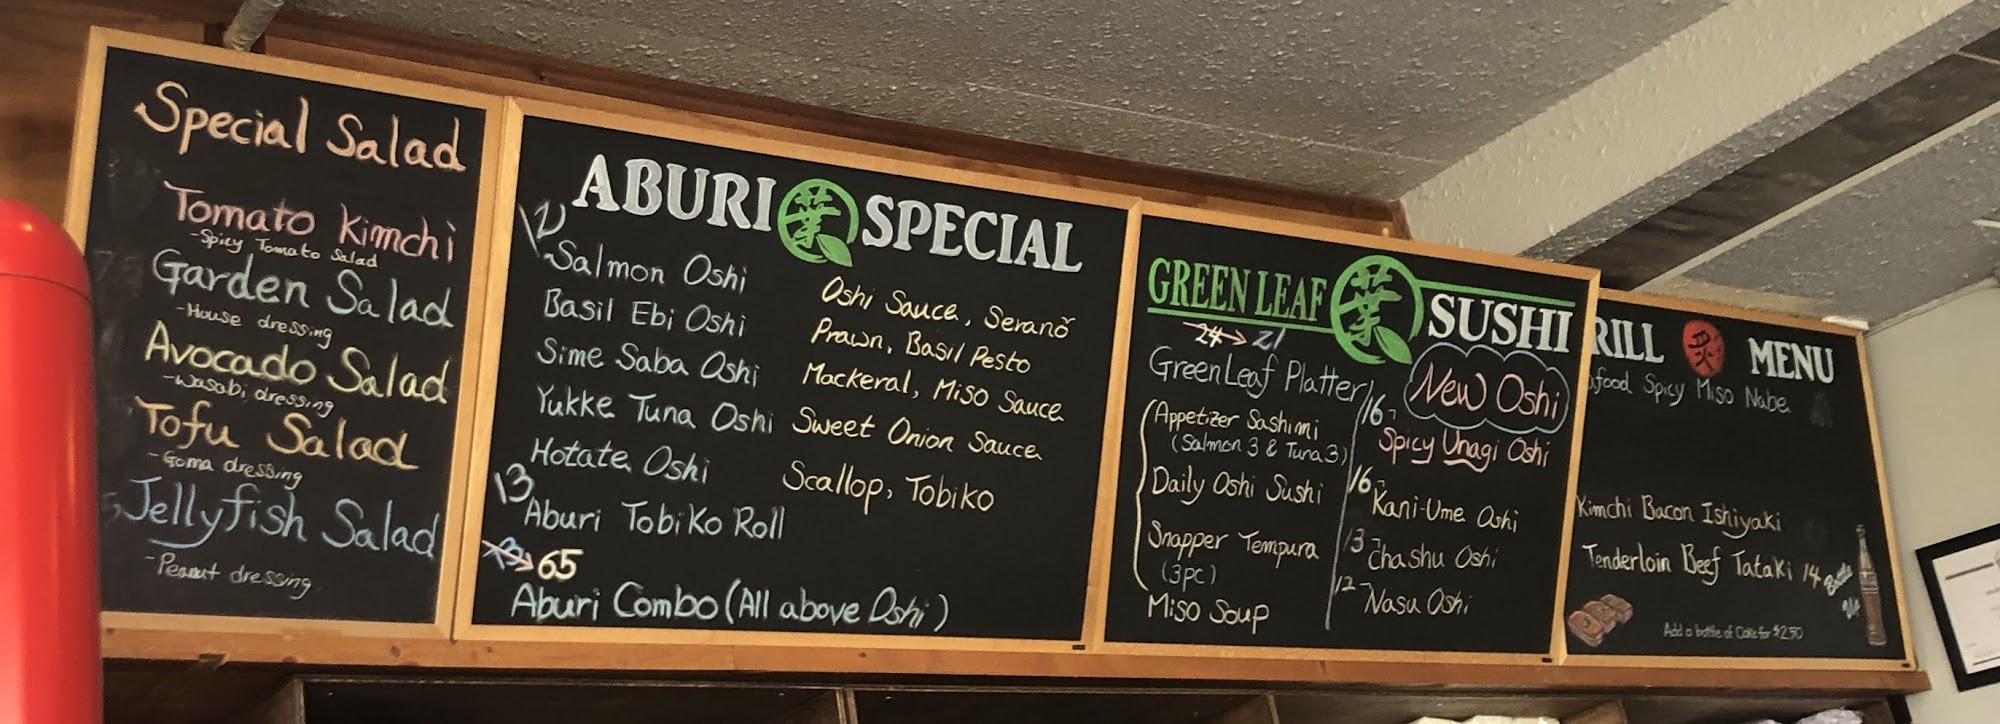 Special Salad
Tomato Kimchi
-Spicy Tomato Salad
Garden Salad
-House dressing
Avocado Salad
-Wasabi dressing
Tofu Salad
-Goma dressing
Jellyfish Salad
-Peanut dressing
ABURI 葉 SPECIAL
12
Salmon Oshi
Oshi Sauce, Serano
Basil Ebi Oshi
Prawn, Basil Pesto
Sime Saba Oshi
Mackeral, Miso Sauce
Yukke Tuna Oshi
Sweet Onion Sauce
Hotate Oshi
Scallop, Tobiko
13
Aburi Tobiko Roll
65
Aburi Combo (All above Oshi)
GREEN LEAF 葉 SUSHI
24→21
GreenLeaf Platter
Appetizer Sashimi
(Salmon 3 & Tuna 3)
Daily Oshi Sushi
Snapper Tempura
(3pc)
Miso Soup
New Oshi
16-
Spicy Unagi Oshi
16-
Kani-Ume Oshi
13-
Chashu Oshi
12-
Nasu Oshi
RILL 炙 MENU
afood Spicy Miso Nabe
Kimchi Bacon Ishiyaki
Tenderloin Beef Tataki 14
Add a bottle of Coke for $2.50